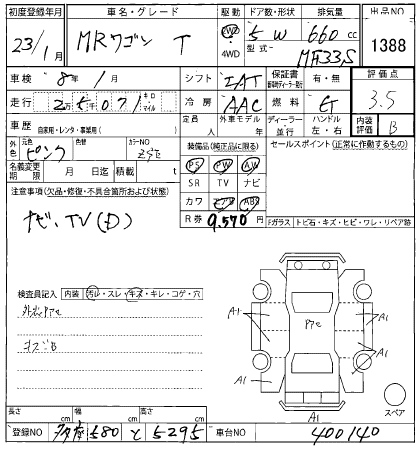 初度登録年月 車名・グレード 駆動 ドア数・形状 排気量 出品NO
23/1月 MRワゴン T 2WD 4WD 5 W 660cc 1388
型式 MF33S
車検 8年/1月 シフト IAT 保証書 新車時ディーラー発行 有・無 評価点 3.5
走行 2万5千071 キロ マイル 冷房 AAC 燃料 G
車歴 自家用・レンタ・事業用( ) 定員 人 外車モデル 年 ディーラー 並行 ハンドル 左・右 内装評価 B
外色 元色 ピンク 色替 カラーNO Z5E 装備品(純正品に限る) セールスポイント(正常に作動するもの)
名義変更期限 月 日迄 積載 t PS PW AW
注意事項(欠品・修復・不具合箇所および状態) SR TV ナビ
ナビ、TV(D) カワ エアB ABS
R券 9,570 Fガラス トビ石・キズ・ヒビ・ワレ・リペア跡
検査員記入 内装 汚レ・スレ・キズ・キレ・コゲ・穴
A1 A1
A1 A1
A1 スペア
長さ cm 幅 cm 高さ cm
登録NO 多摩 580 と 5295 車台NO 400140